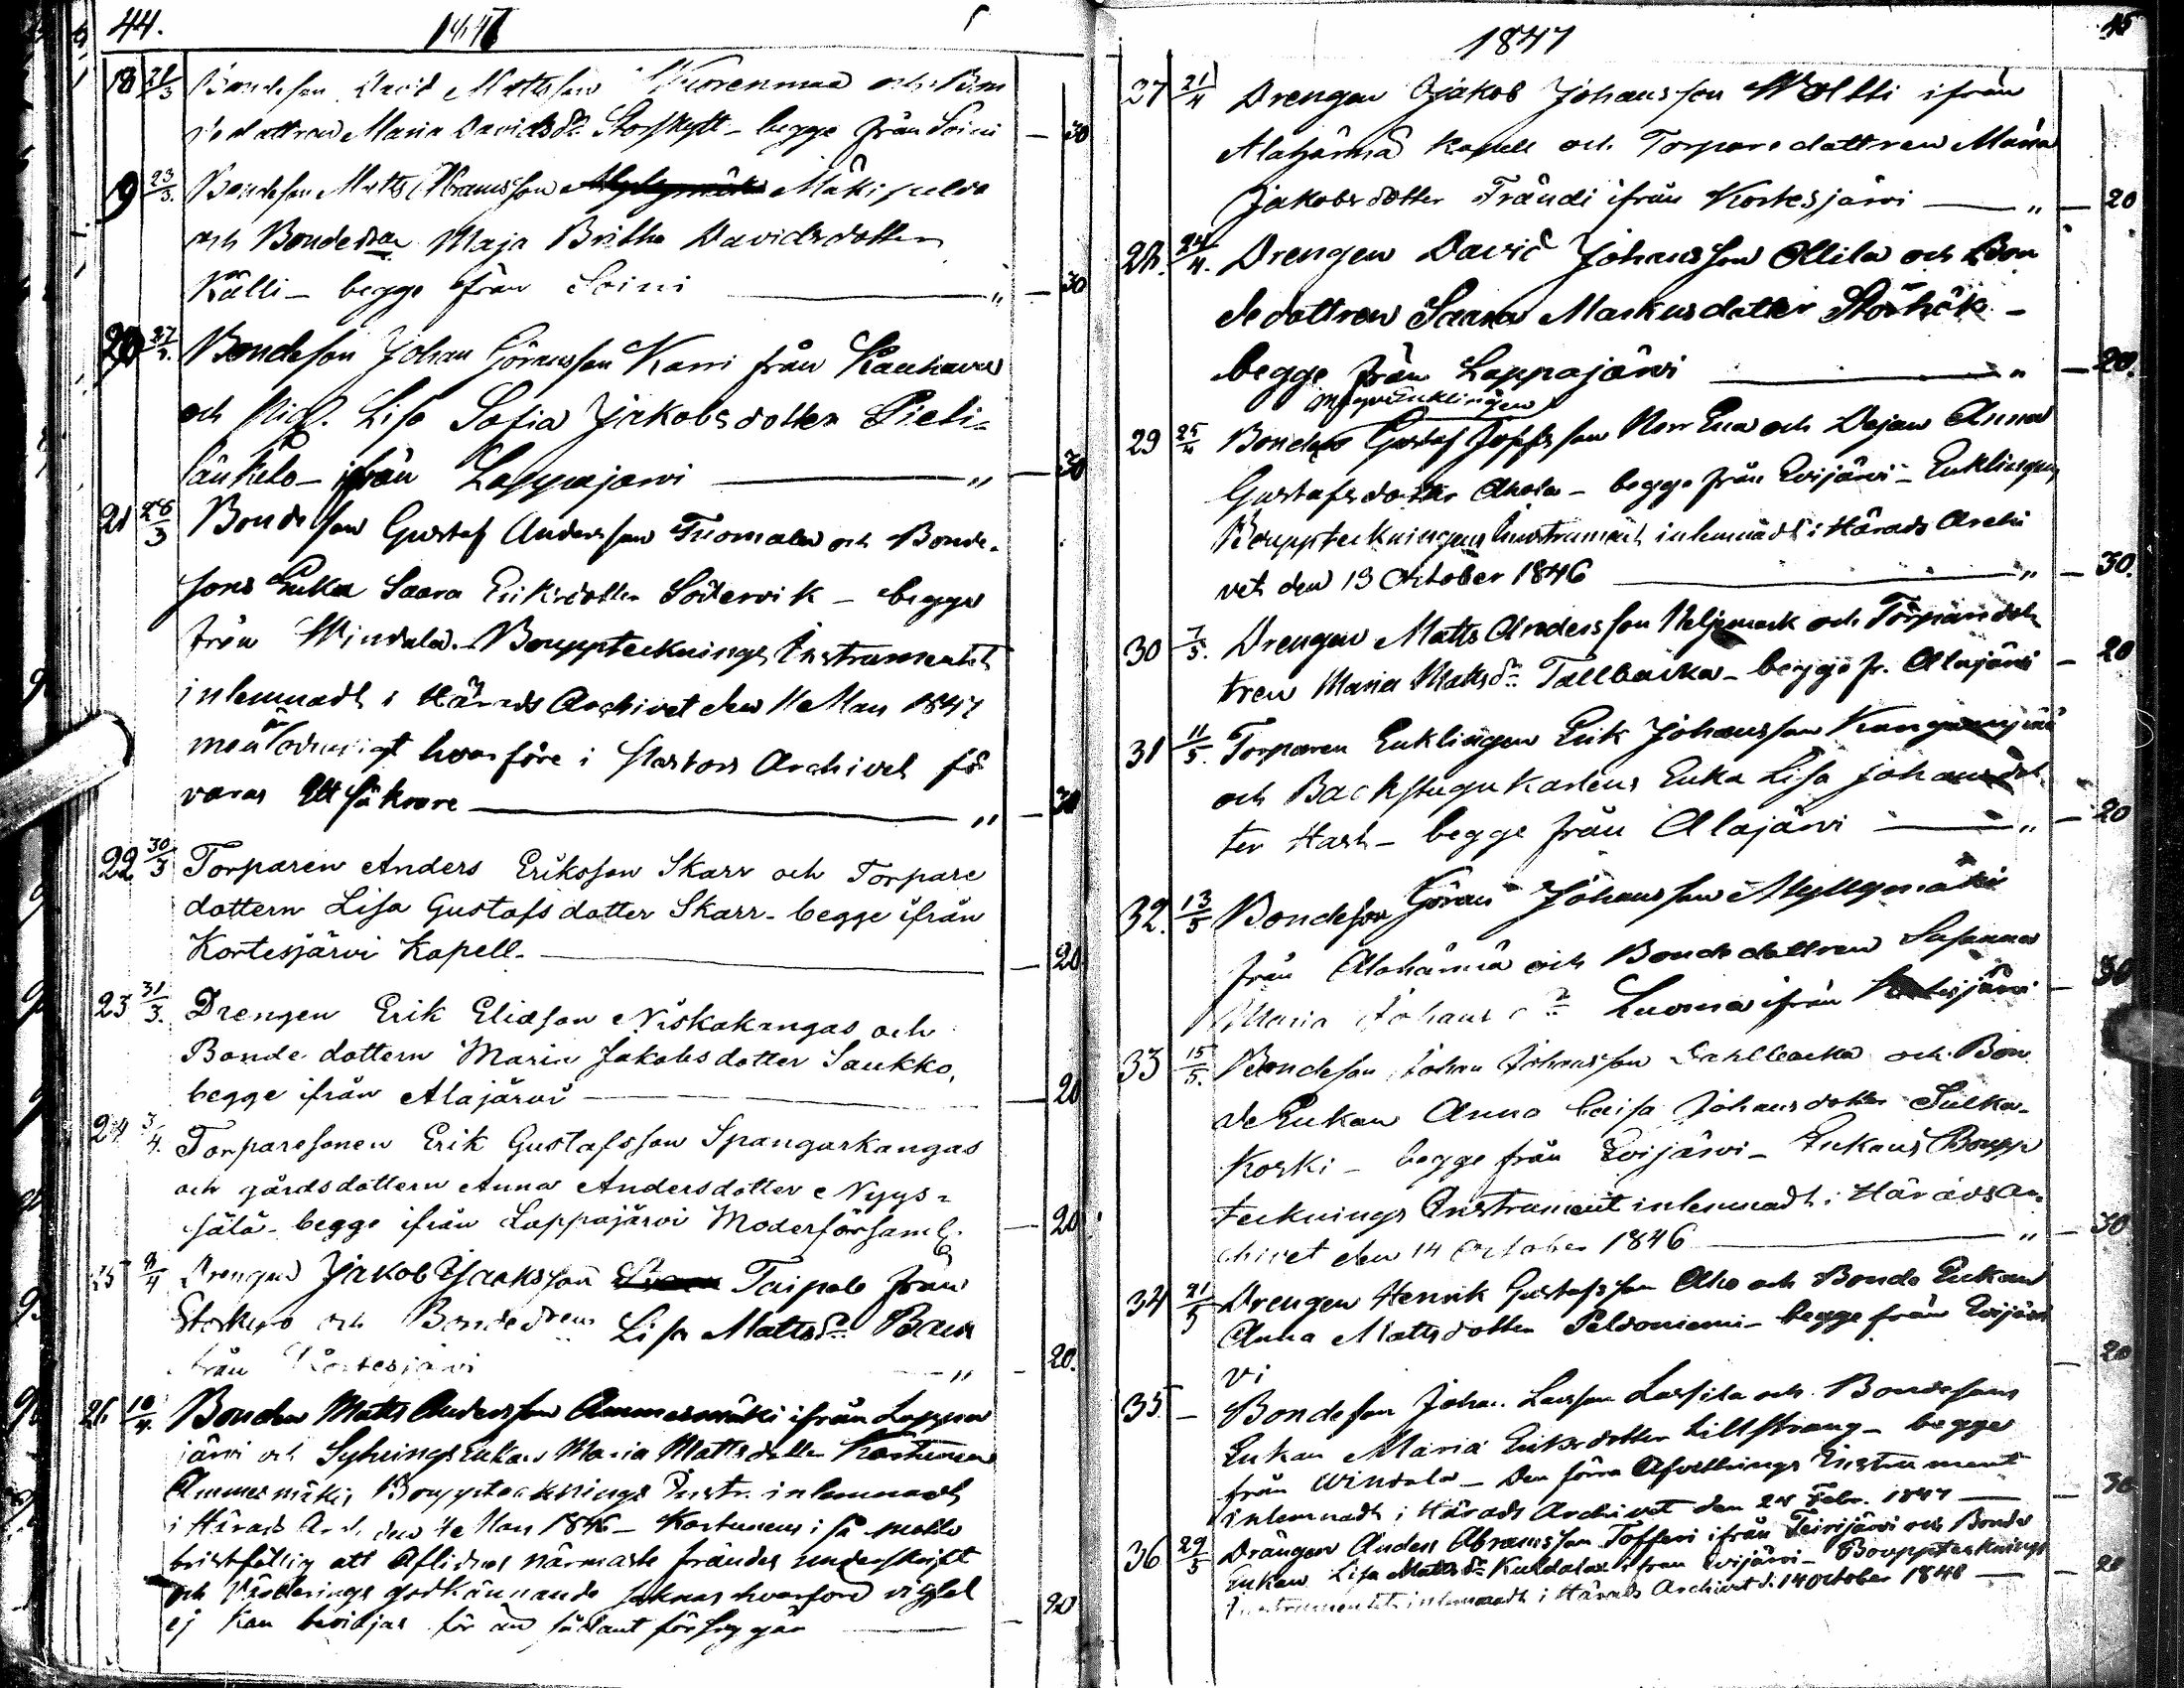 44.
1847
18 21/3 Bondeson David Mattsson Kuorenmaa och Bon
dedottren Maria Davidsdr Storskytt - begge från Soini — 30
19 23/3. Bondeson Matts Abramsson Mäkipelda
och Bondedrn Maja Britha Davidsdotter
Källi - begge från Soini — " — 30
20 27/3. Bondeson Johan Göransson Karri från Kauhava
och Pig. Lisa Sofia Jakobsdotter Pieti-
länkelo - ifrån Lappajärvi — " — 30
21 28/3 Bondeson Gustaf Andersson Tuomala och Bonde-
sons Enka Saara Eriksdotter Södervik - begge
från Windala. Bouppteckings Instrumentet
inlemnadt i Härads Archivet den 11 Mars 1847
men hvarföre i Pastors Archivet för
varas — " — 30
22 30/3 Torparen Anders Eriksson Skarr och Torpare
dottern Lisa Gustafsdotter Skarr - begge ifrån
Kortesjärvi Kapell. — 20
23 31/3. Drengen Erik Eliasson Niskakangas och
Bonde dottern Maria Jakobsdotter Saukko,
begge ifrån Alajärvi — 20
24 3/4. Torparesonen Erik Gustafsson Spangarkangas
och gårdsdottern Anna Andersdotter Nygs-
sälä - begge ifrån Lappajärvi Moderförsaml. — 20
25 9/4 Drengen Jakob Jaaksson Taipale från
Storkyro och Bondedrem Lisa Mattsdr
från Kortesjärvi — " — 20.
26 10/4. Bonden Matts Andersson Ammesmäki ifrån Lappa
järvi och Sytnings Enkan Maria Mattsdotter Kortunen
Ammesmäki, Bouppteckings Instr. inlemnadt
i Härads Arch. den 4e Mars 1846 - Kortunens i så måtto
bristfällig att Aflidnes närmaste fränders underskrift
och Värderings godkännande saknas hvarföre vigsel
ej kan beviljas för än sådant försiggår — 20
1847
45
27 21/4 Drengen Jakob Johansson Woltti ifrån
Alahärmä Kapell och Torparedottren Maria
Jakobsdotter Frändi ifrån Kortesjärvi — " — 20
28. 24/4. Drengen David Johansson Ollila och Bon
dedottren Saara Markusdotter Storhök -
begge från Lappajärvi — " — 20.
29 25/4 Bonden Gustaf Norr Ena och Pigan Anna
Gustafsdotter Ahola - begge från Evijärvi - Enklingens
Bouppteckningens Instrument inlemnadt i Härads Archi
vet den 13 October 1846 — " — 30.
30 7/5. Drengen Matts Andersson och Torparedot
tren Maria Mattsdr Tallbacka - begge fr. Alajärvi — 20
31 11/5. Torparen Enklingen Erik Johansson
och Backstugukarlens Enka Lisa Johansdot
ter Harh - begge från Alajärvi — " — 20
32. 13/5 Bondeson Göran Johansson Myllymäki
från Alahärmä och Bondedottren Susanna
Maria Johansdr Luoma ifrån Kortesjärvi — 30
33 15/5. Bondeson Johan Johansson Dahlbacka och Bon
de Enkan Anna Caisa Johansdotter Sulka-
koski - begge från Evijärvi - Enkans Boupp
tecknings Instrument inlemnadt i Härads Ar-
chivet den 14 October 1846 — " — 30
34 21/5 Drengen Henrik Gustafsson Aho och Bonde Enkan
Anna Mattsdotter Peldoniemi - begge från Evijär
vi — 20
35 - Bondeson Johan Larsson Lassila och Bondesons
Enkan Maria Eriksdotter Lillstrang - begge
från Windala - Den förra Afvittrings Instrument
inlemnadt i Härads Archivet den 24 Febr. 1847 — 30
36 29/5 Drängen Anders Abramsson Tofferi ifrån Teirijärvi och Bonde
Enkan Lisa Mattsdr Kuldalax ifrån Evijärvi - Bouppteckings
Instrumentet inlemnadt i Härads Archivet d. 14 October 1846 — 20